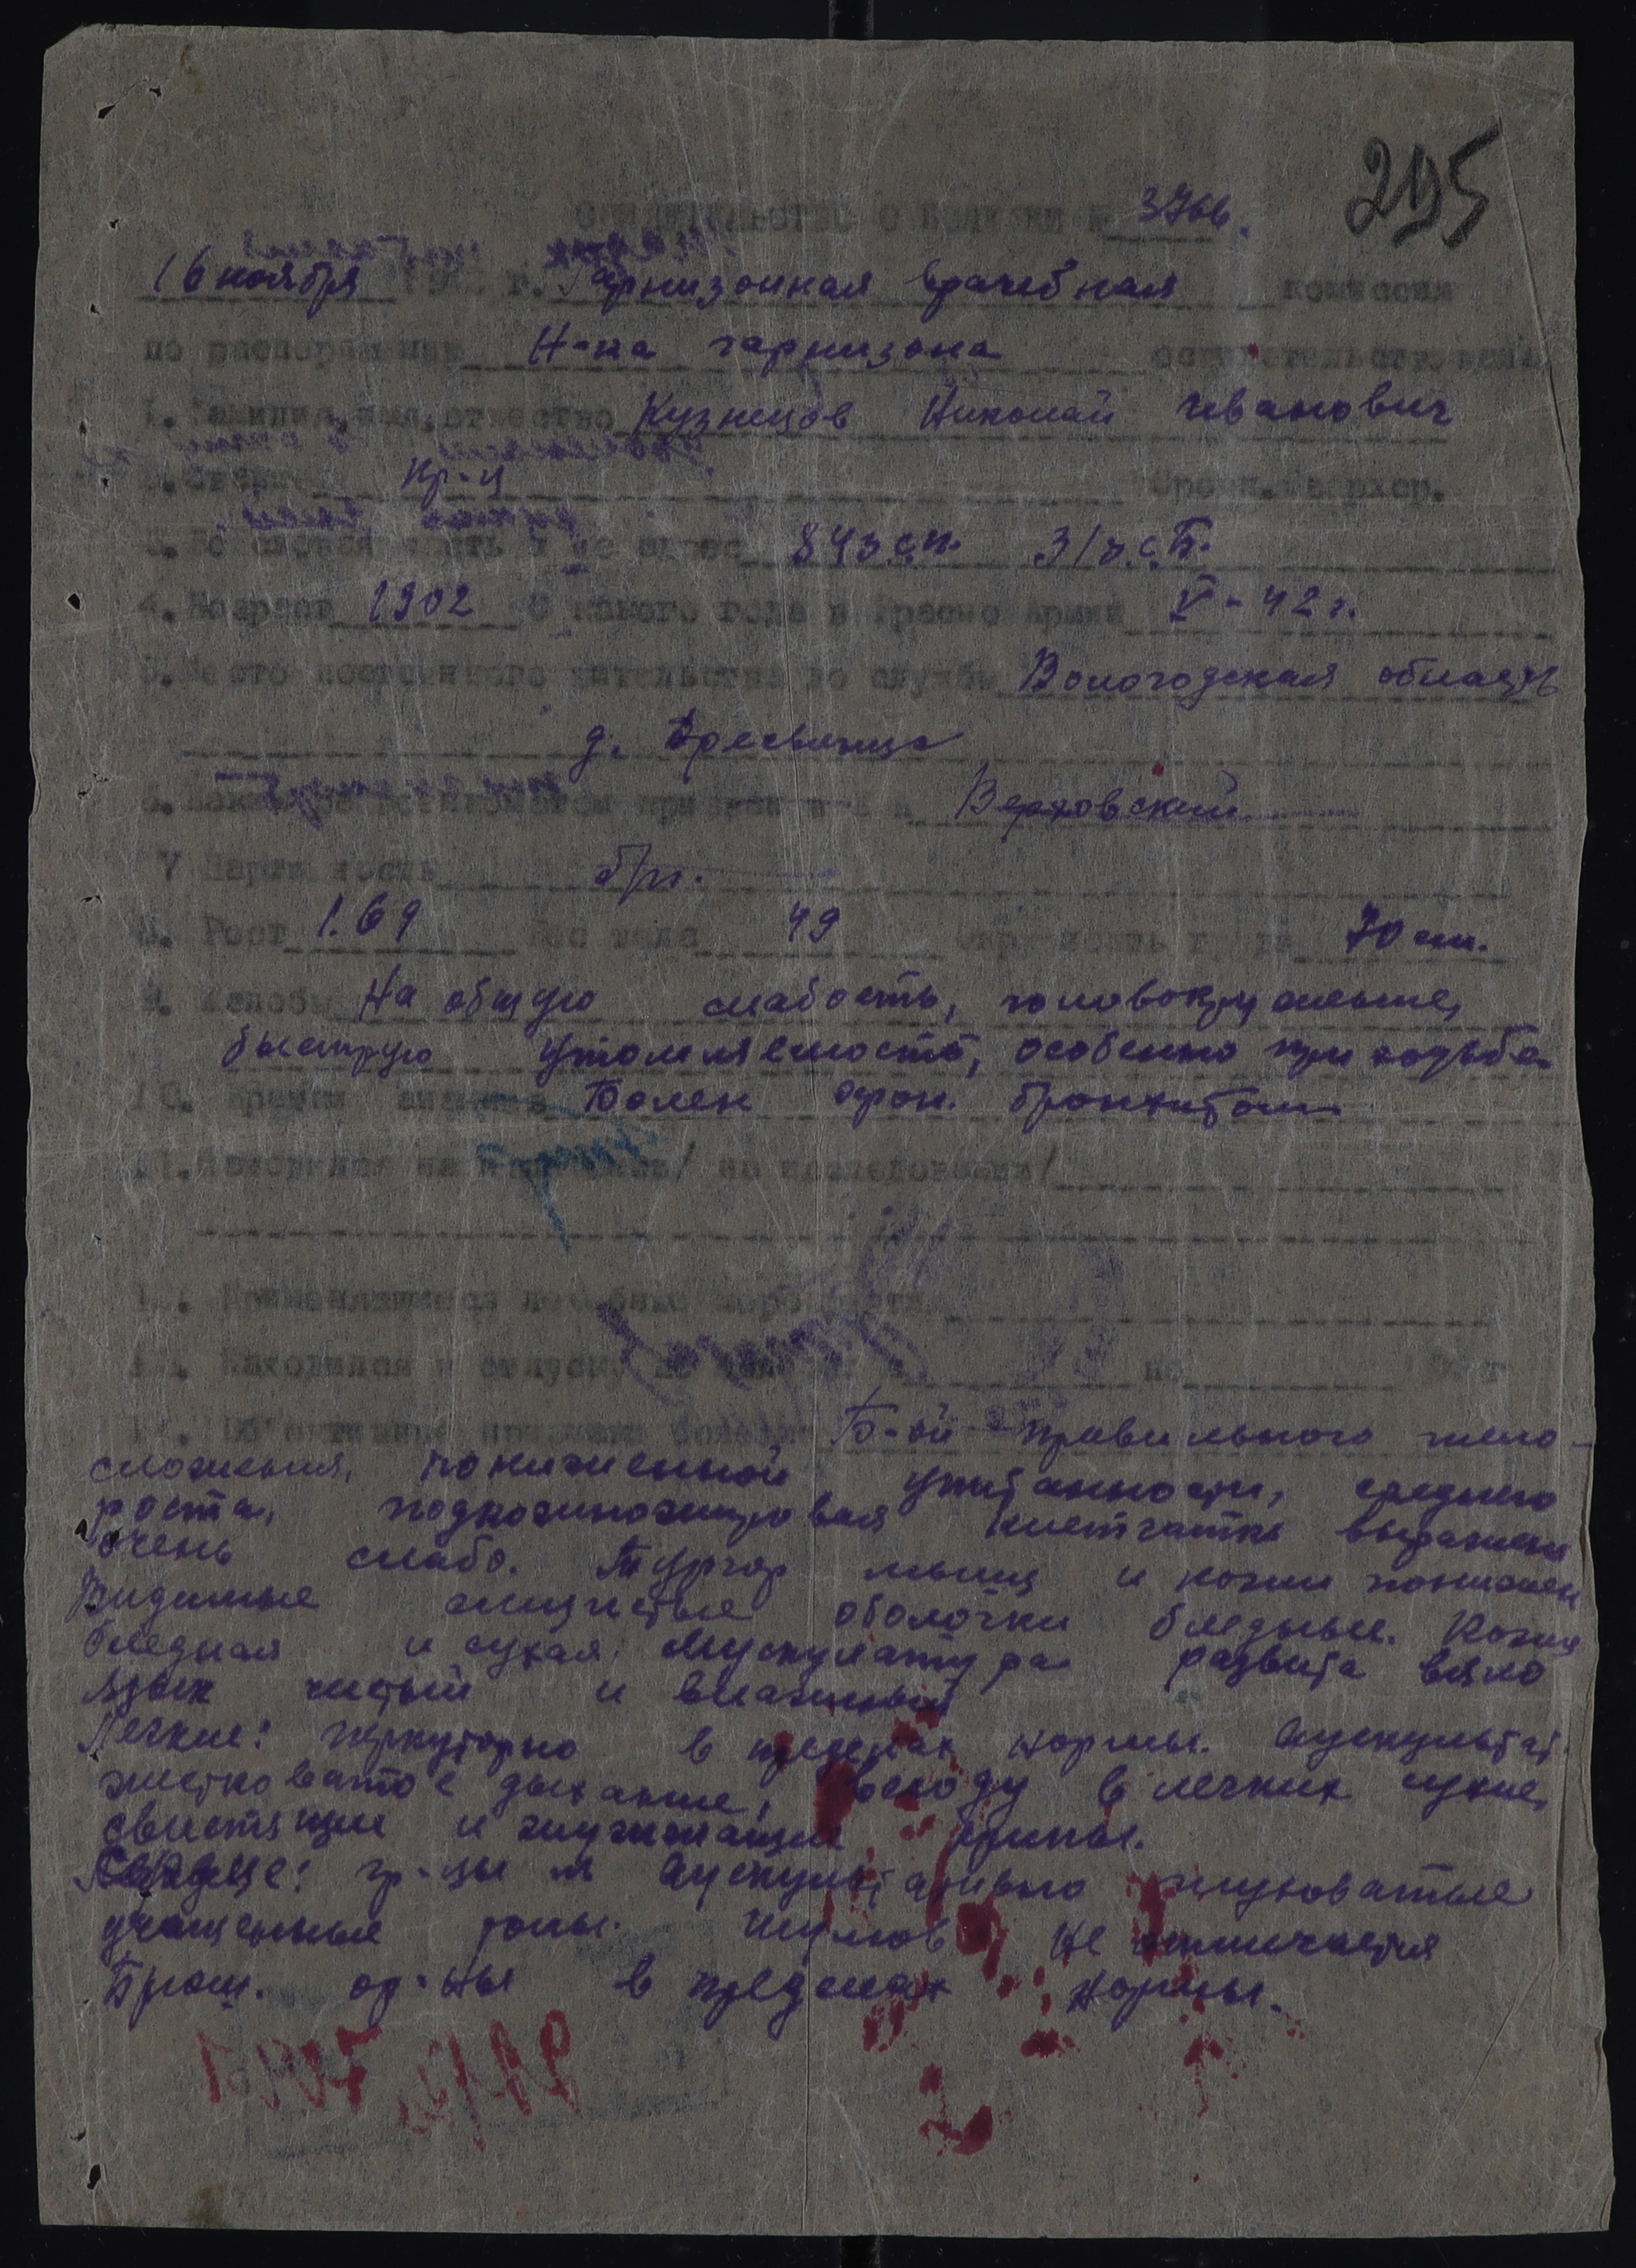 295
СВИДЕТЕЛЬСТВО О БОЛЕЗНИ № 3766.
16 ноября 19 г. Гарнизонная врачебная комиссия
по распоряжению Н-ка гарнизона освидетельствовала
1. Фамилия, имя, отчество Кузнецов Николай Иванович
Кр-ц Срочн. Сверхср.
3. часть и ее адрес 843 с.п.
4. Возраст 1902 С какого года в Красной Армии V-42 г.
5. Место постоянного жительства до службы Вологодская область
д.
6. Каким военкоматом призван в Верховский
7 Партийность б/п.
8. Рост 1.69 Вес тела 49 Окружность груди 70 см.
9. Жалобы На общую слабость, головокружение,
быструю утомляемость, особенно при ходьбе
10. Краткий анамнез Болен хрон. бронхитом
11. Находился на излечении/ на исследовании/
12. Применявшиеся лечебные мероприятия
13. Находился в отпуску по болезни с по 19 г
14. Об'ективные признаки болезни Б-ой правильного тело-
сложения, пониженной упитанности, среднего
роста, подкожножировая клетчатка выражена
очень слабо. Тургор мышц и кожи понижен
Видимые слизистые оболочки бледные. Кожа
бледная и сухая, мускулатура развита вяло
Язык чистый и влажный
Легкие: перкуторно в пределах нормы. Аускультат.
жестковатое дыхание, всюду в легких сухие,
свистящие и жужжащие хрипы.
Сердце: гр-цы N Аускультативно глуховатые
учащенные тоны. Шумов не отмечается
Брюш. ор-ны в пределах нормы.